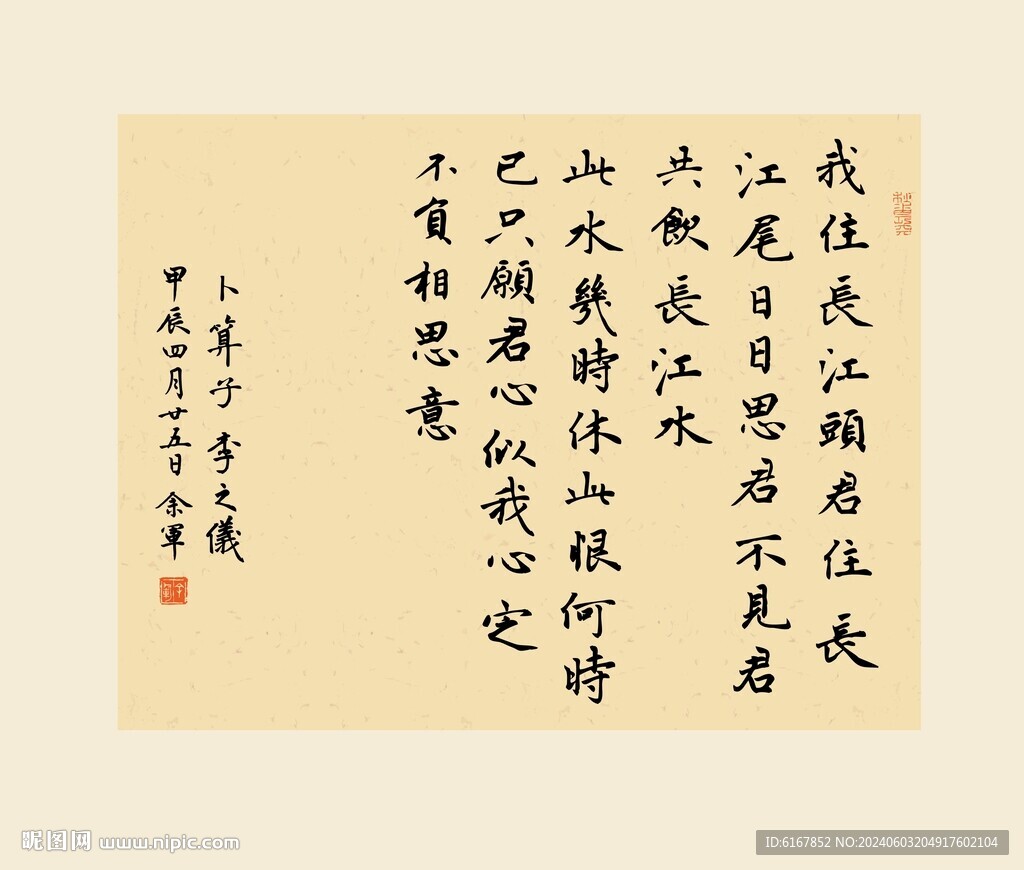 我住長江頭君住長
江尾日日思君不見君
共飲長江水
此水幾時休此恨何時
已只願君心似我心定
不負相思意
卜算子 李之儀
甲辰四月廿五日 余軍
昵图网 www.nipic.com
ID:6167852 NO:20240603204917602104